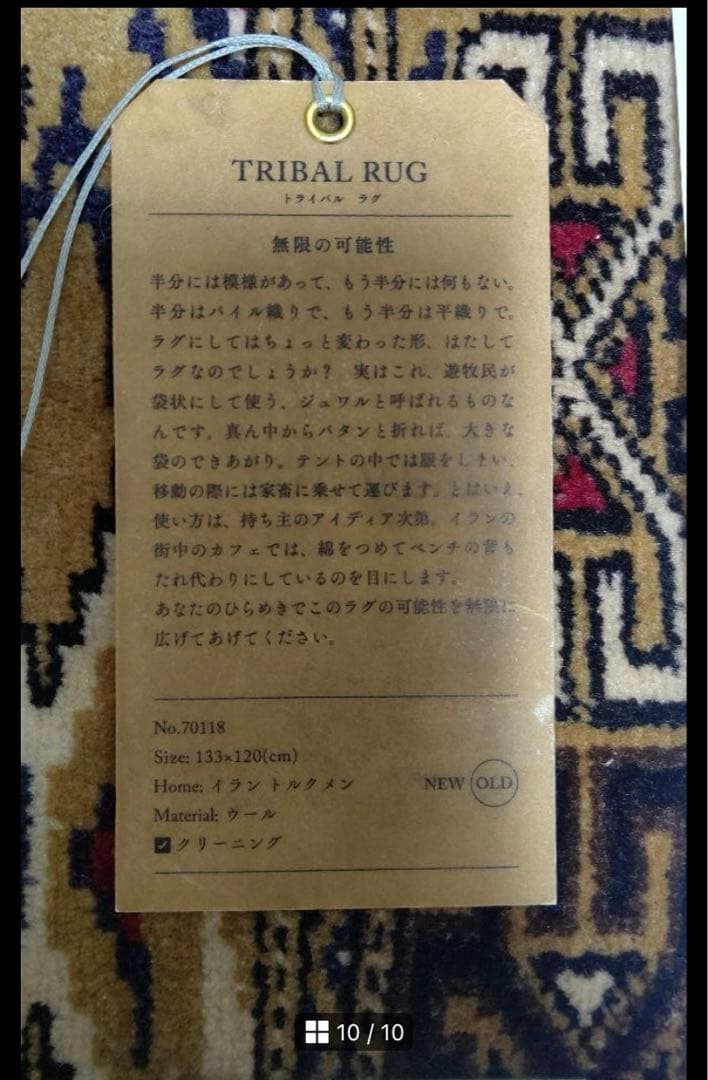 TRIBAL RUG
トライバル ラグ
無限の可能性
半分には模様があって、もう半分には何もない。
半分はパイル織りで、もう半分は平織りで。
ラグにしてはちょっと変わった形、はたして
ラグなのでしょうか? 実はこれ、遊牧民が
袋状にして使う、ジュワルと呼ばれるものな
んです。真ん中からパタンと折れば、大きな
袋のできあがり。テントの中では服をしまい、
移動の際には家畜に乗せて運びます。とはいえ、
使い方は、持ち主のアイディア次第。イランの
街中のカフェでは、綿をつめてベンチの背も
たれ代わりにしているのを目にします。
あなたのひらめきでこのラグの可能性を無限に
広げてあげてください。
No.70118
Size: 133×120(cm)
Home: イラン トルクメン
NEW OLD
Material: ウール
☑クリーニング
10 / 10